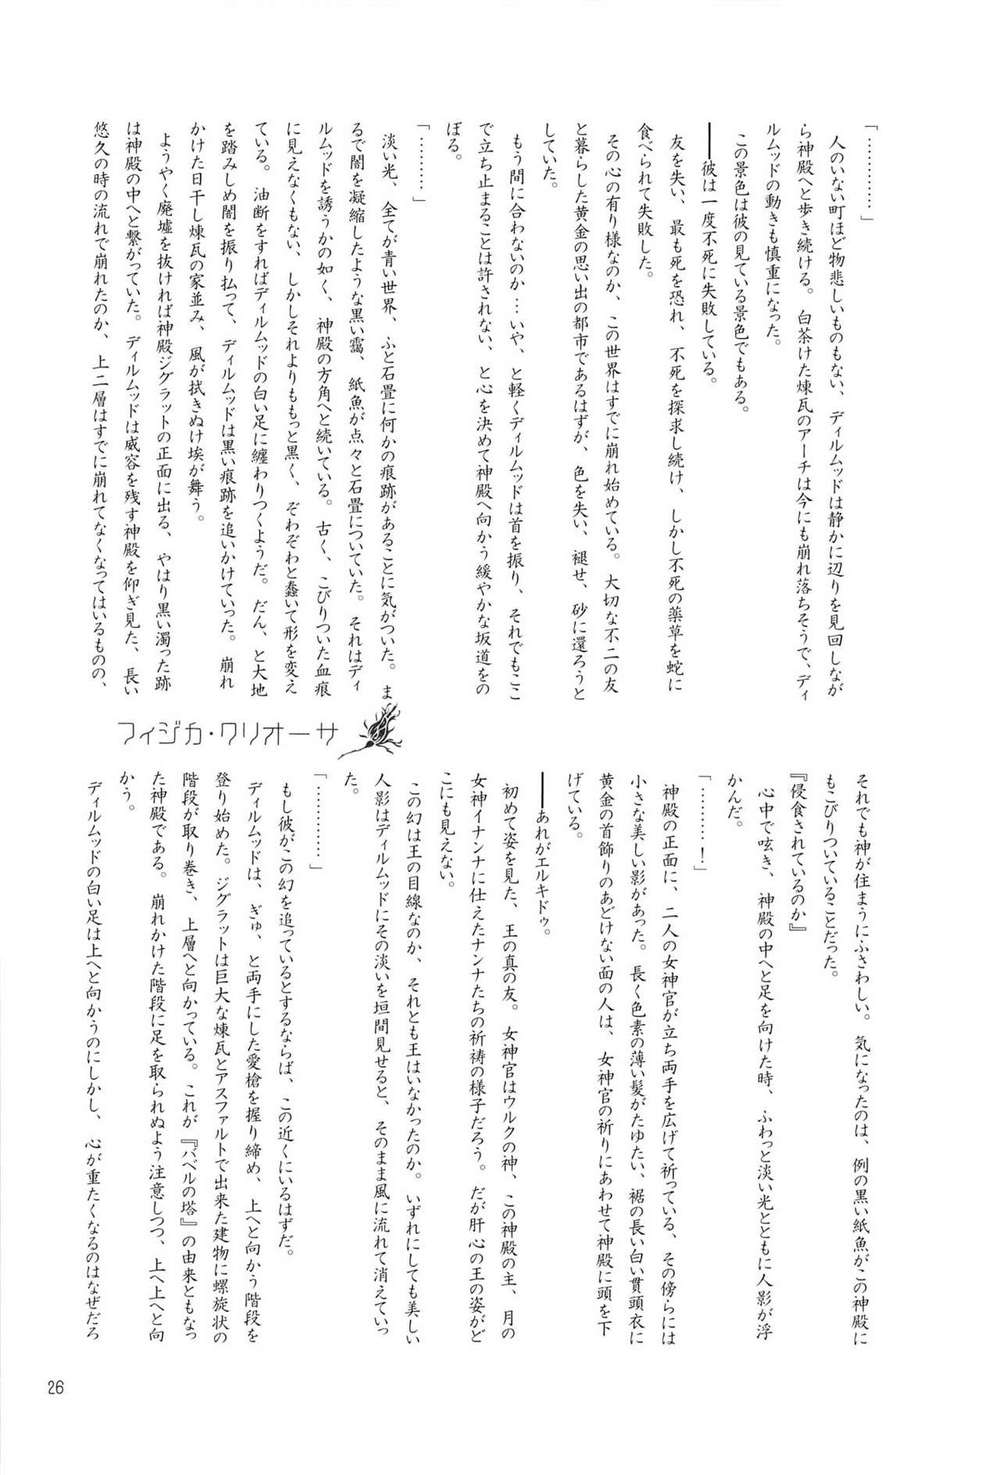 「…………」
　人のいない町ほど物悲しいものもない、ディルムッドは静かに辺りを見回しなが
ら神殿へと歩き続ける。白茶けた煉瓦のアーチは今にも崩れ落ちそうで、ディ
ルムッドの動きも慎重になった。
　この景色は彼の見ている景色でもある。
――彼は一度不死に失敗している。
　友を失い、最も死を恐れ、不死を探求し続け、しかし不死の薬草を蛇に
食べられて失敗した。
　その心の有り様なのか、この世界はすでに崩れ始めている。大切な不二の友
と暮らした黄金の思い出の都市であるはずが、色を失い、褪せ、砂に還ろうと
していた。
　もう間に合わないのか…いや、と軽くディルムッドは首を振り、それでもここ
で立ち止まることは許されない、と心を決めて神殿へ向かう緩やかな坂道をの
ぼる。
「………」
　淡い光、全てが青い世界、ふと石畳に何かの痕跡があることに気がついた。ま
るで闇を凝縮したような黒い靄、紙魚が点々と石畳についていた。それはディ
ルムッドを誘うかの如く、神殿の方角へと続いている。古く、こびりついた血痕
に見えなくもない、しかしそれよりももっと黒く、ぞわぞわと蠢いて形を変え
ている。油断をすればディルムッドの白い足に纏わりつくようだ。だん、と大地
を踏みしめ闇を振り払って、ディルムッドは黒い痕跡を追いかけていった。崩れ
かけた日干し煉瓦の家並み、風が拭きぬけ埃が舞う。
　ようやく廃墟を抜ければ神殿ジグラットの正面に出る、やはり黒い濁った跡
は神殿の中へと繋がっていた。ディルムッドは威容を残す神殿を仰ぎ見た、長い
悠久の時の流れで崩れたのか、上二層はすでに崩れてなくなってはいるものの、
フィジカ・クリオーサ
それでも神が住まうにふさわしい。気になったのは、例の黒い紙魚がこの神殿に
もこびりついていることだった。
『侵食されているのか』
　心中で呟き、神殿の中へと足を向けた時、ふわっと淡い光とともに人影が浮
かんだ。
「………！」
　神殿の正面に、二人の女神官が立ち両手を広げて祈っている、その傍らには
小さな美しい影があった。長く色素の薄い髪がたゆたい、裾の長い白い貫頭衣に
黄金の首飾りのあどけない面の人は、女神官の祈りにあわせて神殿に頭を下
げている。
――あれがエルキドゥ。
　初めて姿を見た、王の真の友。女神官はウルクの神、この神殿の主、月の
女神イナンナに仕えたナンナたちの祈祷の様子だろう。だが肝心の王の姿がど
こにも見えない。
　この幻は王の目線なのか、それとも王はいなかったのか。いずれにしても美しい
人影はディルムッドにその淡いを垣間見せると、そのまま風に流れて消えていっ
た。
「…………」
　もし彼がこの幻を追っているとするならば、この近くにいるはずだ。
　ディルムッドは、ぎゅ、と両手にした愛槍を握り締め、上へと向かう階段を
登り始めた。ジグラットは巨大な煉瓦とアスファルトで出来た建物に螺旋状の
階段が取り巻き、上層へと向かっている。これが『バベルの塔』の由来ともなっ
た神殿である。崩れかけた階段に足を取られぬよう注意しつつ、上へ上へと向
かう。
　ディルムッドの白い足は上へと向かうのにしかし、心が重たくなるのはなぜだろ
26